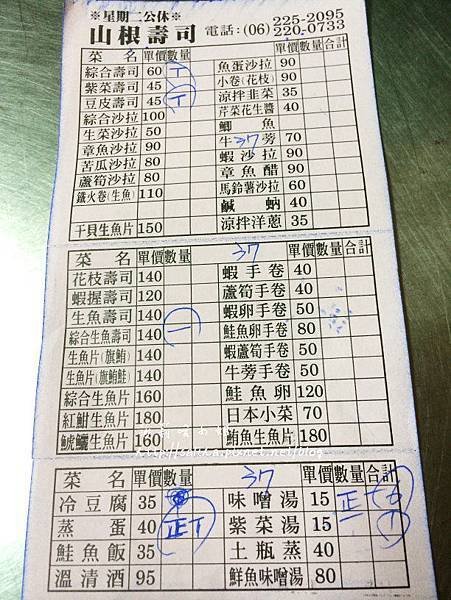 ※星期二公休※
山根壽司 電話:(06) 225-2095
220-0733
菜名 單價 數量 合計
綜合壽司 60 T 魚蛋沙拉 90
紫菜壽司 45 小卷(花枝) 90
豆皮壽司 45 T 涼拌韭菜 35
綜合沙拉 100 芹菜花生醬 40
生菜沙拉 50 鯽魚
章魚沙拉 90 牛蒡 70
苦瓜沙拉 80 蝦沙拉 90
蘆筍沙拉 80 章魚醋 90
鐵火卷(生魚) 110 馬鈴薯沙拉 60
鹹蚋 40
干貝生魚片 150 涼拌洋蔥 35
菜名 單價 數量 37 單價 數量 合計
花枝壽司 140 蝦手卷 40
蝦握壽司 120 蘆筍手卷 40
生魚壽司 140 蝦卵手卷 50
綜合生魚壽司 140 一 鮭魚卵手卷 80
生魚片(旗鮪) 140 蝦蘆筍手卷 50
生魚片(旗鮪鮭) 140 牛蒡手卷 50
綜合生魚片 160 鮭魚卵 120
紅魽生魚片 180 日本小菜 70
鯱鱺生魚片 160 鮪魚生魚片 180
菜名 單價 數量 37 單價 數量 合計
冷豆腐 35 味噌湯 15 正
蒸蛋 40 正T 紫菜湯 15
鮭魚飯 35 土瓶蒸 40
溫清酒 95 鮮魚味噌湯 80